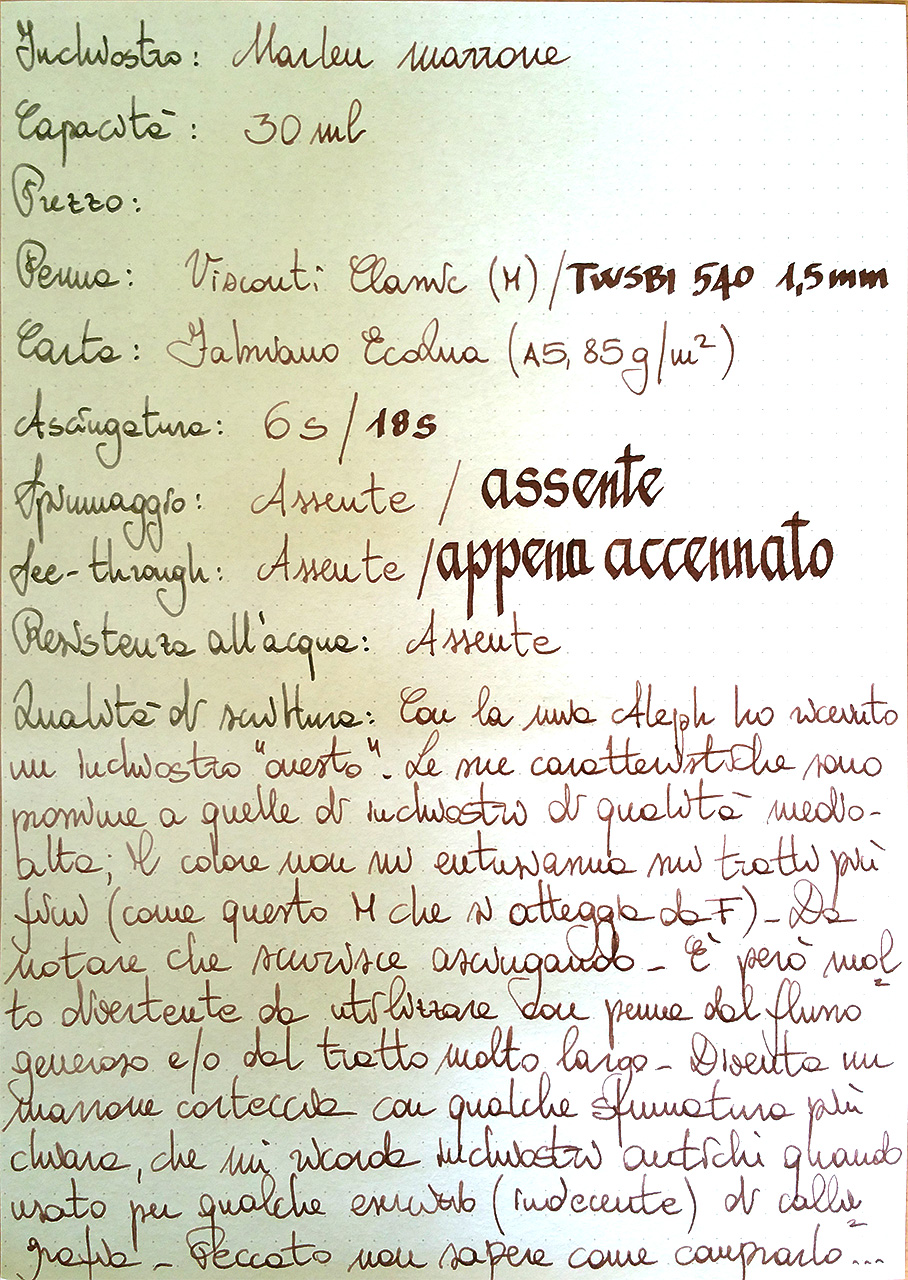 Inchiostro: Marlen marrone
Capacità: 30 ml
Prezzo:
Penna: Visconti Classic (M) / TWSBI 540 1,5mm
Carta: Fabriano EcoQua (A5, 85 g/m²)
Asciugatura: 6s / 18s
Spiumaggio: Assente / assente
See-through: Assente / appena accennato
Resistenza all'acqua: Assente
Qualità di scrittura: Con la mia Aleph ho ricevuto
un inchiostro "onesto". Le sue caratteristiche sono
prossime a quelle di inchiostri di qualità medio-
alta; il colore non mi entusiasma sui tratti più
fini (come questo M che si atteggia da F)_ Da
notare che scurisce asciugando_ È però mol
to divertente da utilizzare con penne dal flusso
generoso e/o dal tratto molto largo_ Diventa un
marrone corteccia con qualche sfumatura più
chiara, che mi ricorda inchiostri antichi quando
usato per qualche esercizio (indecente) di calli
grafia_ Peccato non sapere come comprarlo...